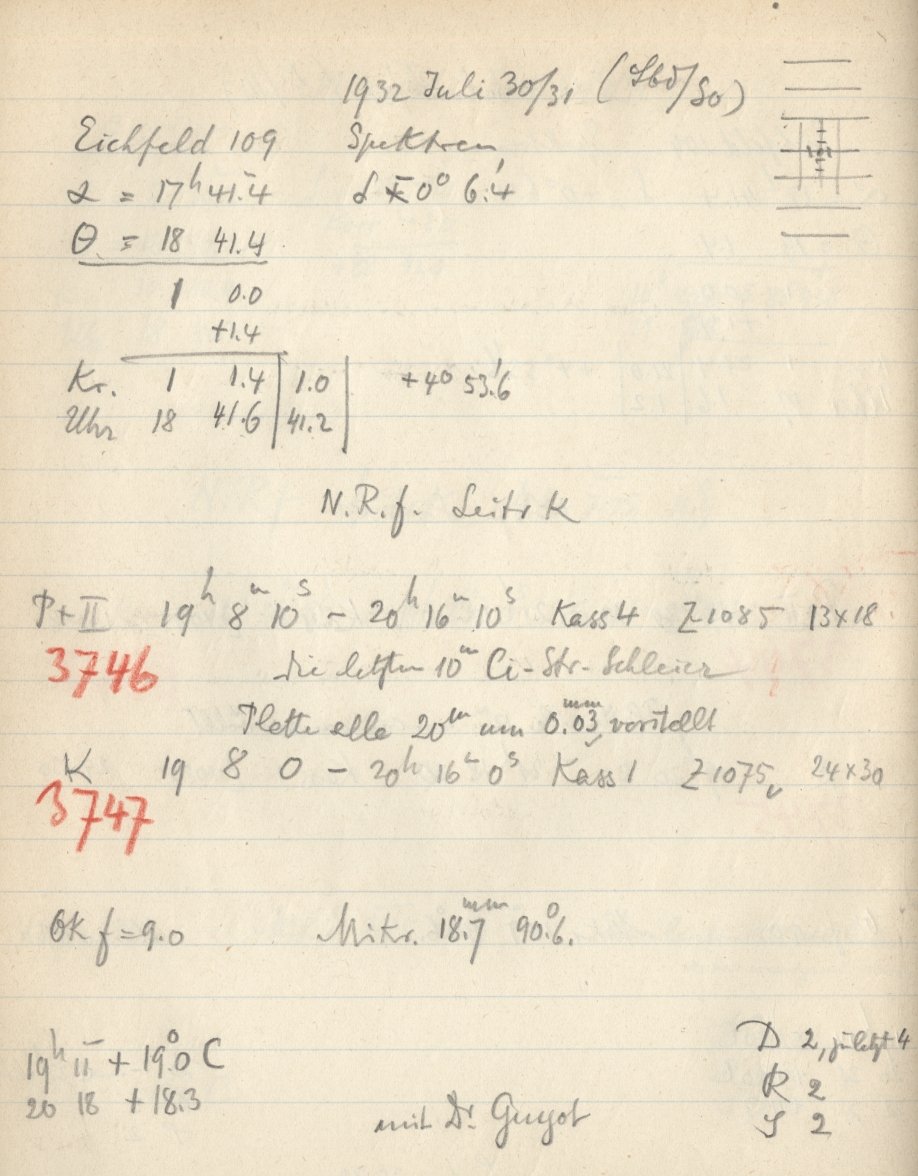 1932 Juli 30/31 (Sbd/So)
Eichfeld 109 Spektren
α = 17ʰ 41ᵐ.4 δ = 0° 6'.4
θ = 18 41.4
1 0.0
+1.4
Kr. 1 1.4 1.0 +4° 53'.6
Uhr 18 41.6 41.2
N.R.f. Leitr K
P+II 19ʰ 8ᵐ 10ˢ – 20ʰ 16ᵐ 10ˢ Kass 4 Z 1085 13x18
3746 die letzten 10ᵐ Ci-Str-Schleier
Platte alle 20ᵐ um 0.03ᵐᵐ verstellt
K 19 8 0 – 20ʰ 16ᵐ 0ˢ Kass 1 Z 1075 24x30
3747
OK f=9.0 Mikr. 18.7ᵐᵐ 90°.6.
19ʰ 11ᵐ + 19°.0 C D 2, zuletzt 4
20 18 +18.3 R 2
mit Dr. Guyot S 2